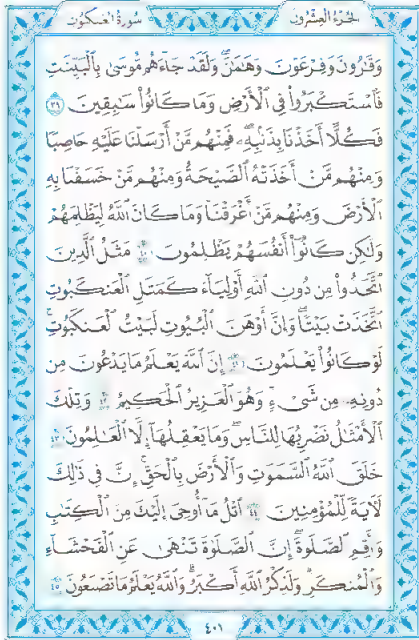 الجزء العشرون سورة العنكبوت
وَقَٰرُونَ وَفِرْعَوْنَ وَهَٰمَٰنَ وَلَقَدْ جَآءَهُم مُّوسَىٰ بِٱلْبَيِّنَٰتِ
فَٱسْتَكْبَرُوا۟ فِى ٱلْأَرْضِ وَمَا كَانُوا۟ سَٰبِقِينَ ٣٩
فَكُلًّا أَخَذْنَا بِذَنۢبِهِۦ فَمِنْهُم مَّنْ أَرْسَلْنَا عَلَيْهِ حَاصِبًا
وَمِنْهُم مَّنْ أَخَذَتْهُ ٱلصَّيْحَةُ وَمِنْهُم مَّنْ خَسَفْنَا بِهِ
ٱلْأَرْضَ وَمِنْهُم مَّنْ أَغْرَقْنَا وَمَا كَانَ ٱللَّهُ لِيَظْلِمَهُمْ
وَلَٰكِن كَانُوٓا۟ أَنفُسَهُمْ يَظْلِمُونَ ٤٠ مَثَلُ ٱلَّذِينَ
ٱتَّخَذُوا۟ مِن دُونِ ٱللَّهِ أَوْلِيَآءَ كَمَثَلِ ٱلْعَنكَبُوتِ
ٱتَّخَذَتْ بَيْتًا وَإِنَّ أَوْهَنَ ٱلْبُيُوتِ لَبَيْتُ ٱلْعَنكَبُوتِ
لَوْ كَانُوا۟ يَعْلَمُونَ ٤١ إِنَّ ٱللَّهَ يَعْلَمُ مَا يَدْعُونَ مِن
دُونِهِۦ مِن شَىْءٍ وَهُوَ ٱلْعَزِيزُ ٱلْحَكِيمُ ٤٢ وَتِلْكَ
ٱلْأَمْثَٰلُ نَضْرِبُهَا لِلنَّاسِ وَمَا يَعْقِلُهَآ إِلَّا ٱلْعَٰلِمُونَ ٤٣
خَلَقَ ٱللَّهُ ٱلسَّمَٰوَٰتِ وَٱلْأَرْضَ بِٱلْحَقِّ إِنَّ فِى ذَٰلِكَ
لَءَايَةً لِّلْمُؤْمِنِينَ ٤٤ ٱتْلُ مَآ أُوحِىَ إِلَيْكَ مِنَ ٱلْكِتَٰبِ
وَأَقِمِ ٱلصَّلَوٰةَ إِنَّ ٱلصَّلَوٰةَ تَنْهَىٰ عَنِ ٱلْفَحْشَآءِ
وَٱلْمُنكَرِ وَلَذِكْرُ ٱللَّهِ أَكْبَرُ وَٱللَّهُ يَعْلَمُ مَا تَصْنَعُونَ ٤٥
٤٠١